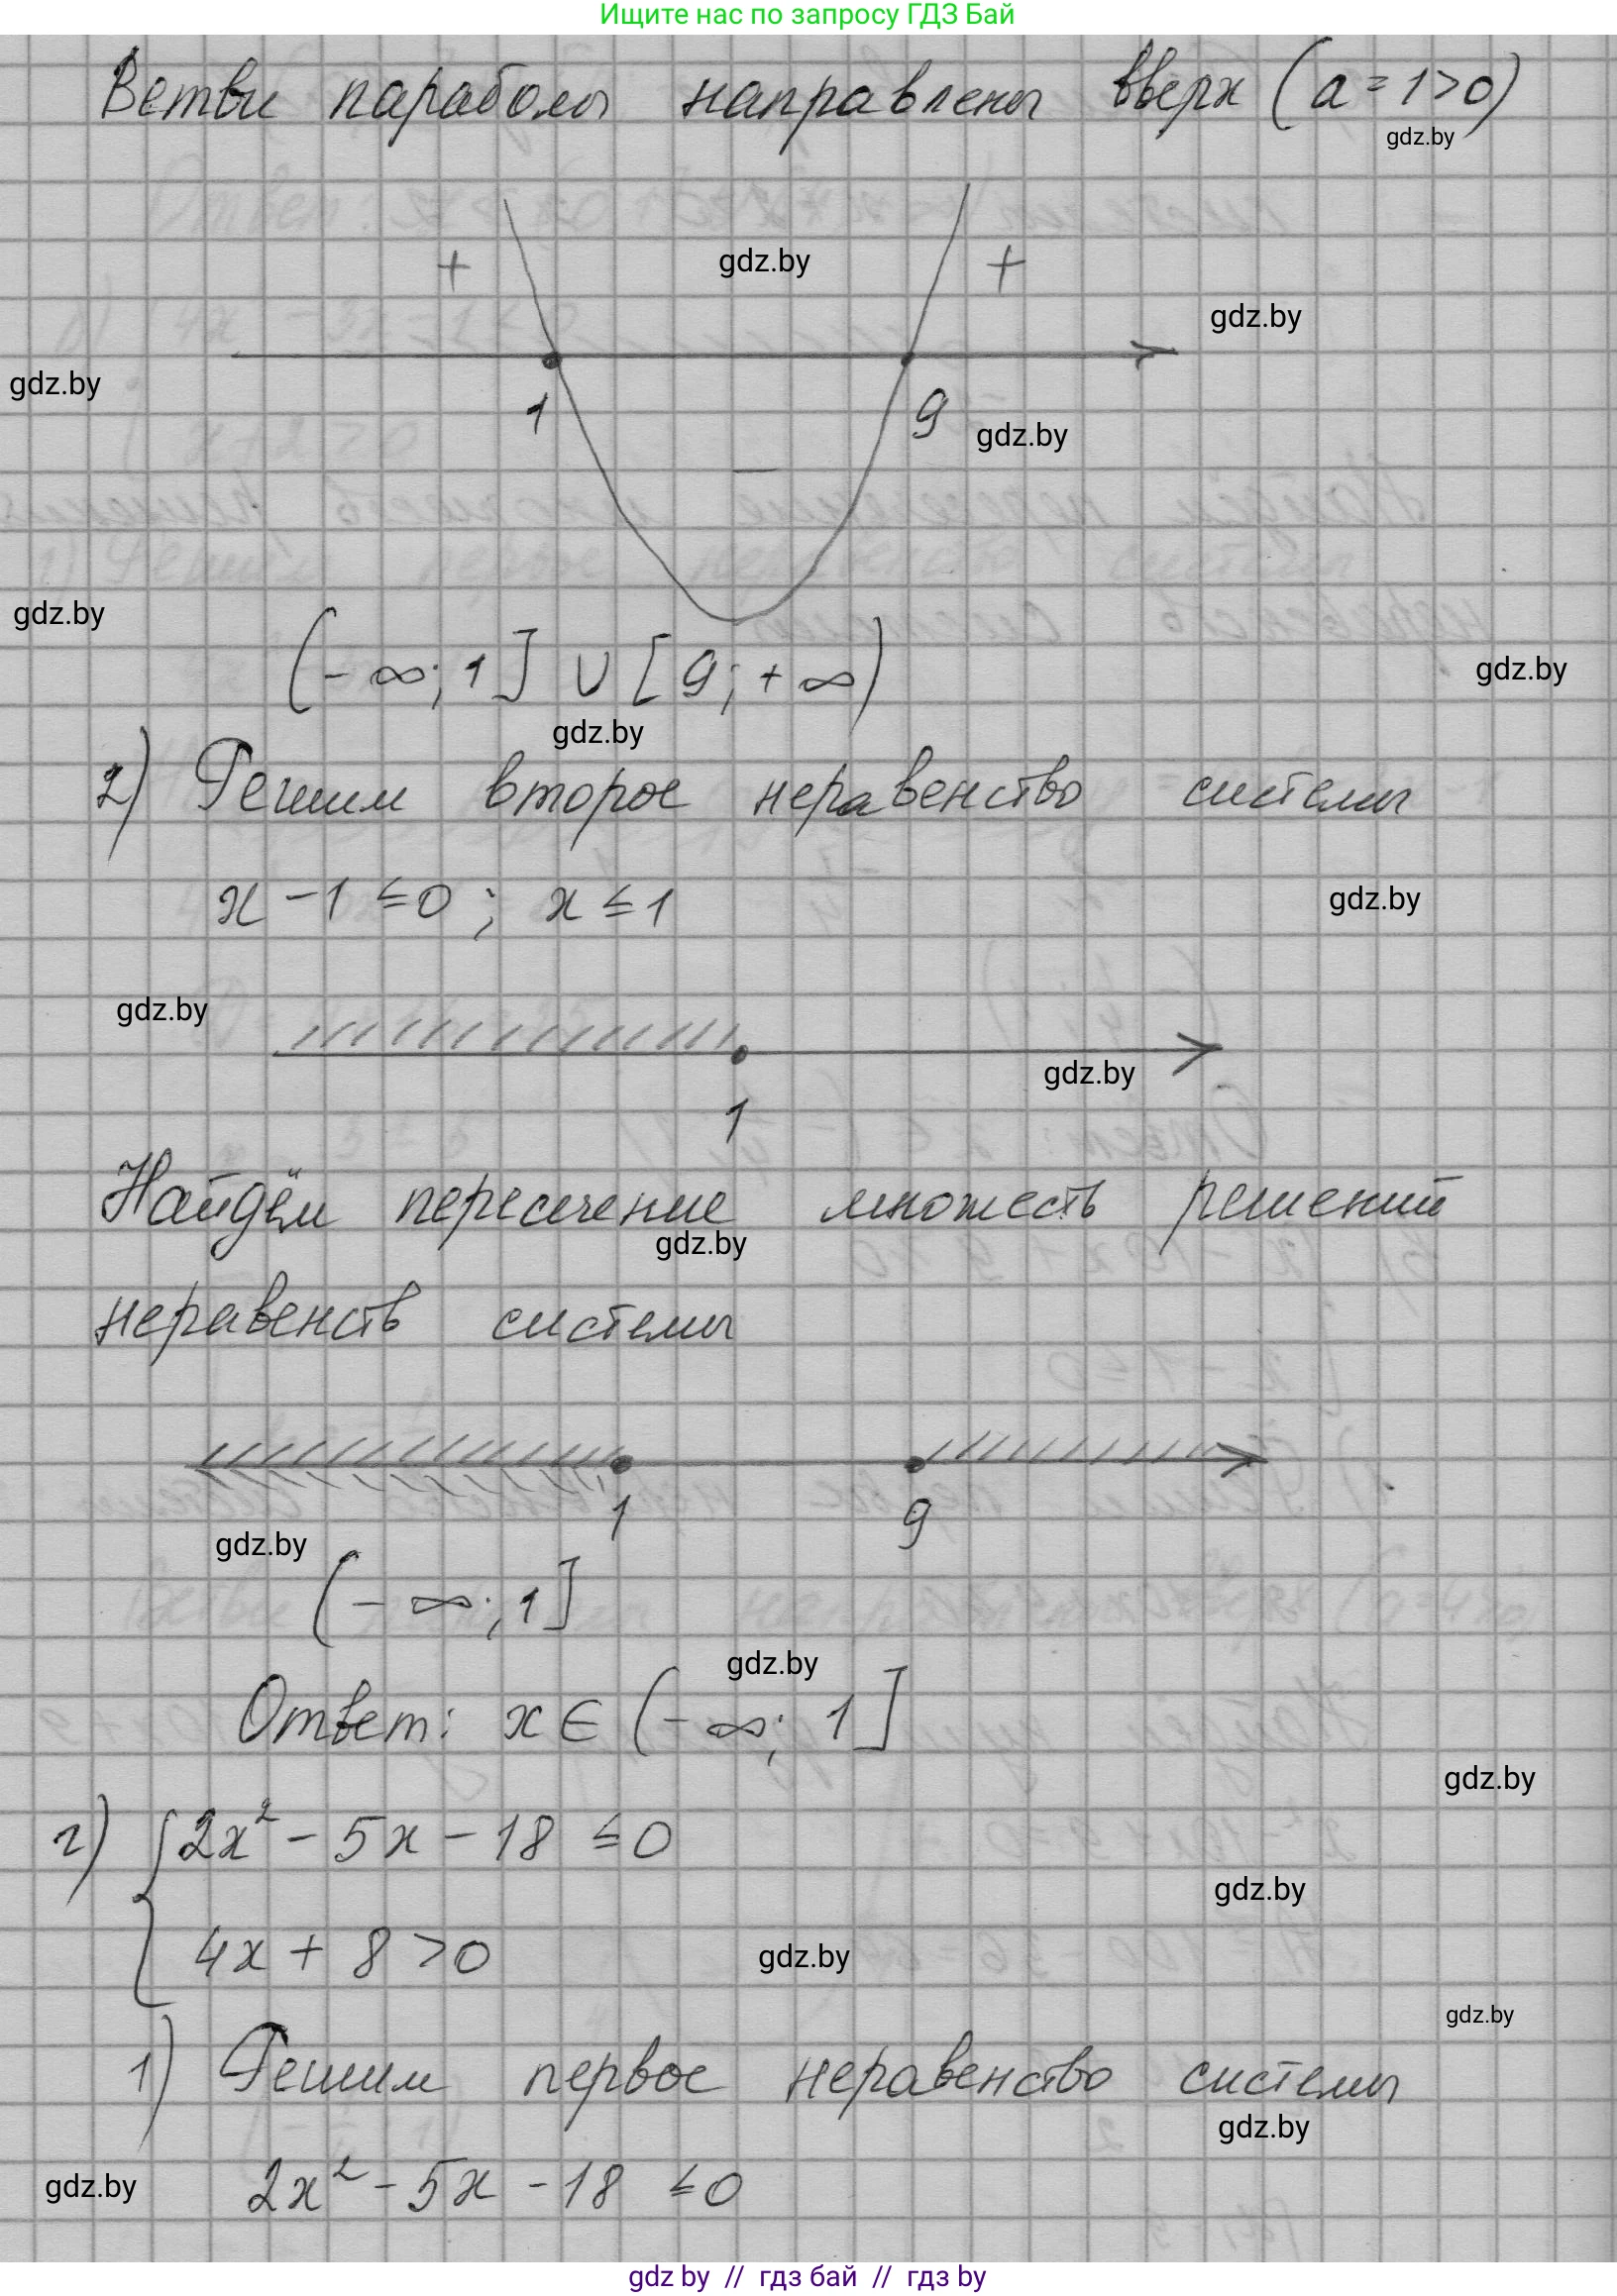 Ищите нас по запросу ГДЗ Бай
Ветви параболы направлены вверх (a = 1 > 0)
gdz.by
+ gdz.by +
gdz.by
gdz.by
1 9 gdz.by
−
gdz.by
(-∞; 1] ∪ [9; +∞)
gdz.by
gdz.by
2) Решим второе неравенство системы
x - 1 ≤ 0 ; x ≤ 1
gdz.by
gdz.by
gdz.by
1
Найдём пересечение множеств решений
gdz.by
неравенств системы
1 9
gdz.by
(-∞; 1]
gdz.by
Ответ: x ∈ (-∞; 1]
gdz.by
г) { 2x² - 5x - 18 ≤ 0
gdz.by
4x + 8 > 0
gdz.by
gdz.by
1) Решим первое неравенство системы
gdz.by
gdz.by 2x² - 5x - 18 ≤ 0
gdz by // гдз бай // гдз by